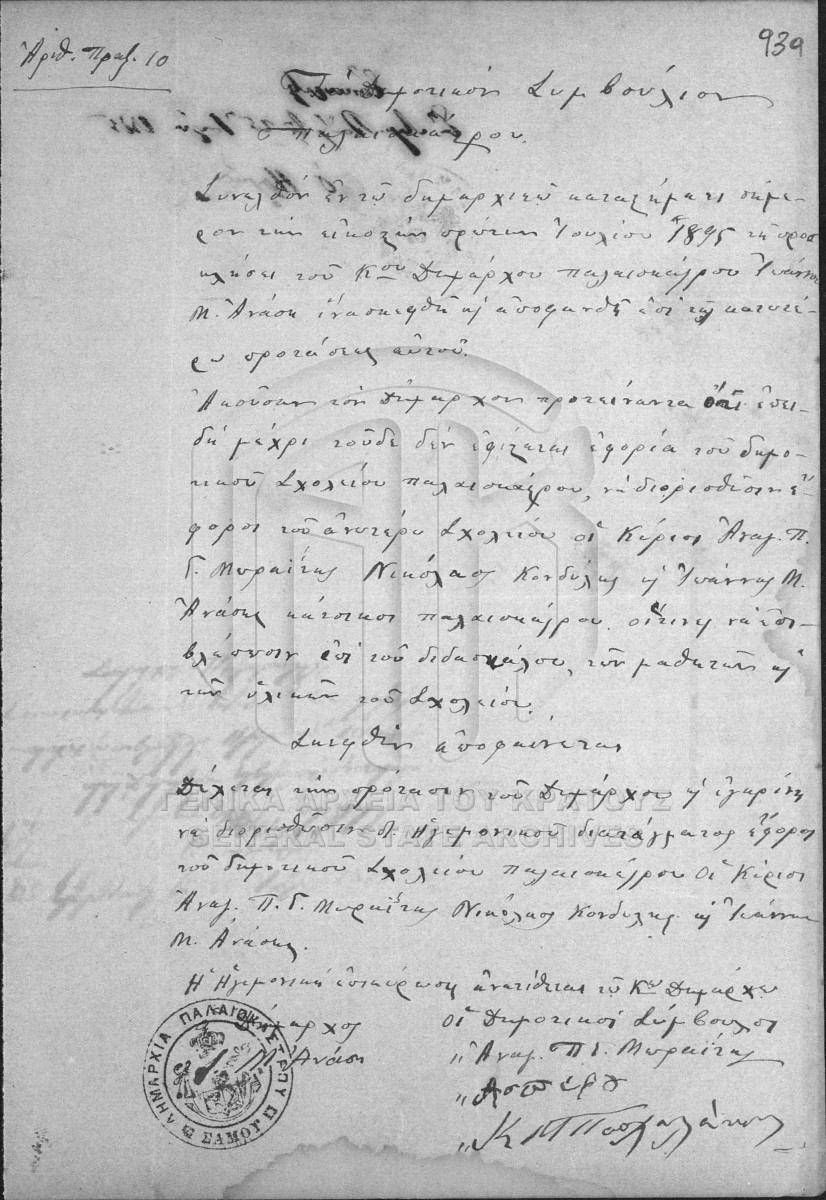 939
Ἀριθ. Πραξ. 10
Τὸ Δημοτικὸν Συμβούλιον
Παλαιοκάστρου.
Συνελθὸν ἐν τῷ δημαρχικῷ καταστήματι σήμε-
ρον τὴν εἰκοστὴν πρώτην Ἰουλίου 1895 τῇ προσ
κλήσει τοῦ Κου Δημάρχου Παλαιοκάστρου Ἰωάννου
Μ. Ἀνάση ἵνα σκεφθῇ κ ἀποφανθῇ ἐπὶ τῆς κατωτέ-
ρω προτάσεως αὐτοῦ.
Ἀκοῦσαν τὸν Δήμαρχον προτείναντα ὅτι ἐπει-
δὴ μέχρι τοῦδε δὲν ὑφίσταται ἐφορία τοῦ δημο-
τικοῦ Σχολείου Παλαιοκάστρου, νὰ διορισθῶσιν ἔ-
φοροι τοῦ ἀνωτέρω Σχολείου οἱ Κύριοι Ἀναγ. Π.
Γ. Μωραΐτης Νικόλαος Κονδύλης κ Ἰωάννης Μ.
Ἀνάσης κάτοικοι Παλαιοκάστρου. οἵτινες νὰ ἐπι-
βλέπωσιν ἐπὶ τοῦ διδασκάλου, τῶν μαθητῶν κ
τῶν ὑλικῶν τοῦ Σχολείου.
Σκεφθὲν ἀποφαίνεται
Δέχεται τὴν πρότασιν τοῦ Δημάρχου κ ἐγκρίνει
νὰ διορισθῶσιν δι' Ἡγεμονικοῦ διατάγματος ἔφοροι
τοῦ δημοτικοῦ Σχολείου Παλαιοκάστρου οἱ Κύριοι
Ἀναγ. Π. Γ. Μωραΐτης Νικόλαος Κονδύλης κ Ἰωάννης
Μ. Ἀνάσης.
Ἡ Ἡγεμονικὴ ἐπικύρωσις ἀνατίθεται τῷ Κῳ Δημάρχῳ
Ὁ Δήμαρχος
Ἀνάσης
Οἱ Δημοτικοὶ Σύμβουλοι
" Ἀναγ. Π Γ. Μωραΐτης
"
" Κ
ΔΗΜΑΡΧΙΑ ΠΑΛΑΙΟΚΑΣΤΡΟΥ
ΣΑΜΟΥ
ΓΕΝΙΚΑ ΑΡΧΕΙΑ ΤΟΥ ΚΡΑΤΟΥΣ
GENERAL STATE ARCHIVES